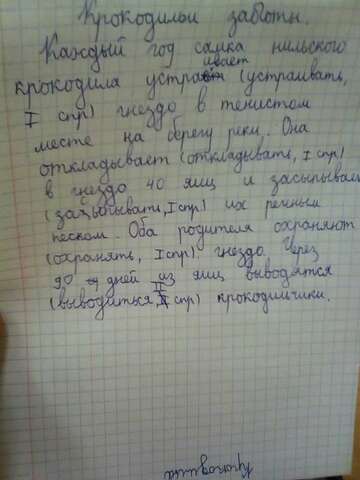 Крокодильи заботы.
Каждый год самка нильского
ивает
крокодила устра (устраивать,
I спр) гнездо в тенистом
месте на берегу реки. Она
откладывает (откладывать, I спр)
в гнездо 40 яиц и засыпывае
(засыпывать, I спр) их речным
песком. Оба родителя охраняют
(охранять, I спр) гнездо. Через
90 дней из яиц выводятся
(выводиться, II спр) крокодильчики.